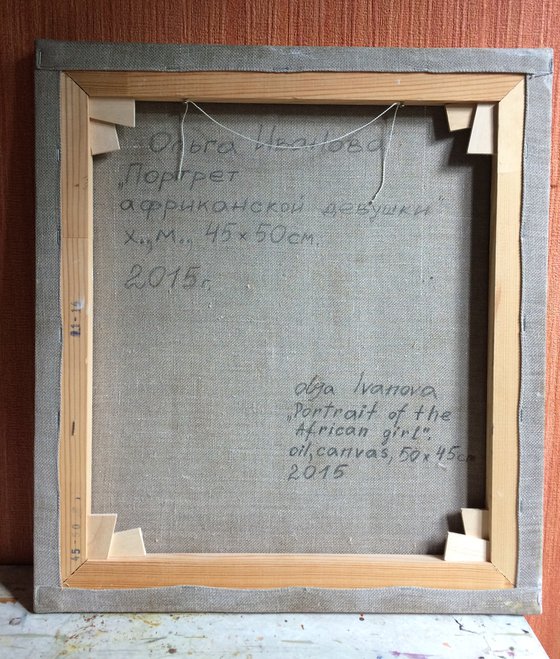 Ольга Иванова
„Портрет
африканской девушки"
х., м., 45×50см.
2015г.
olga Ivanova
„Portrait of the
African girl".
oil, canvas, 50×45cm
2015